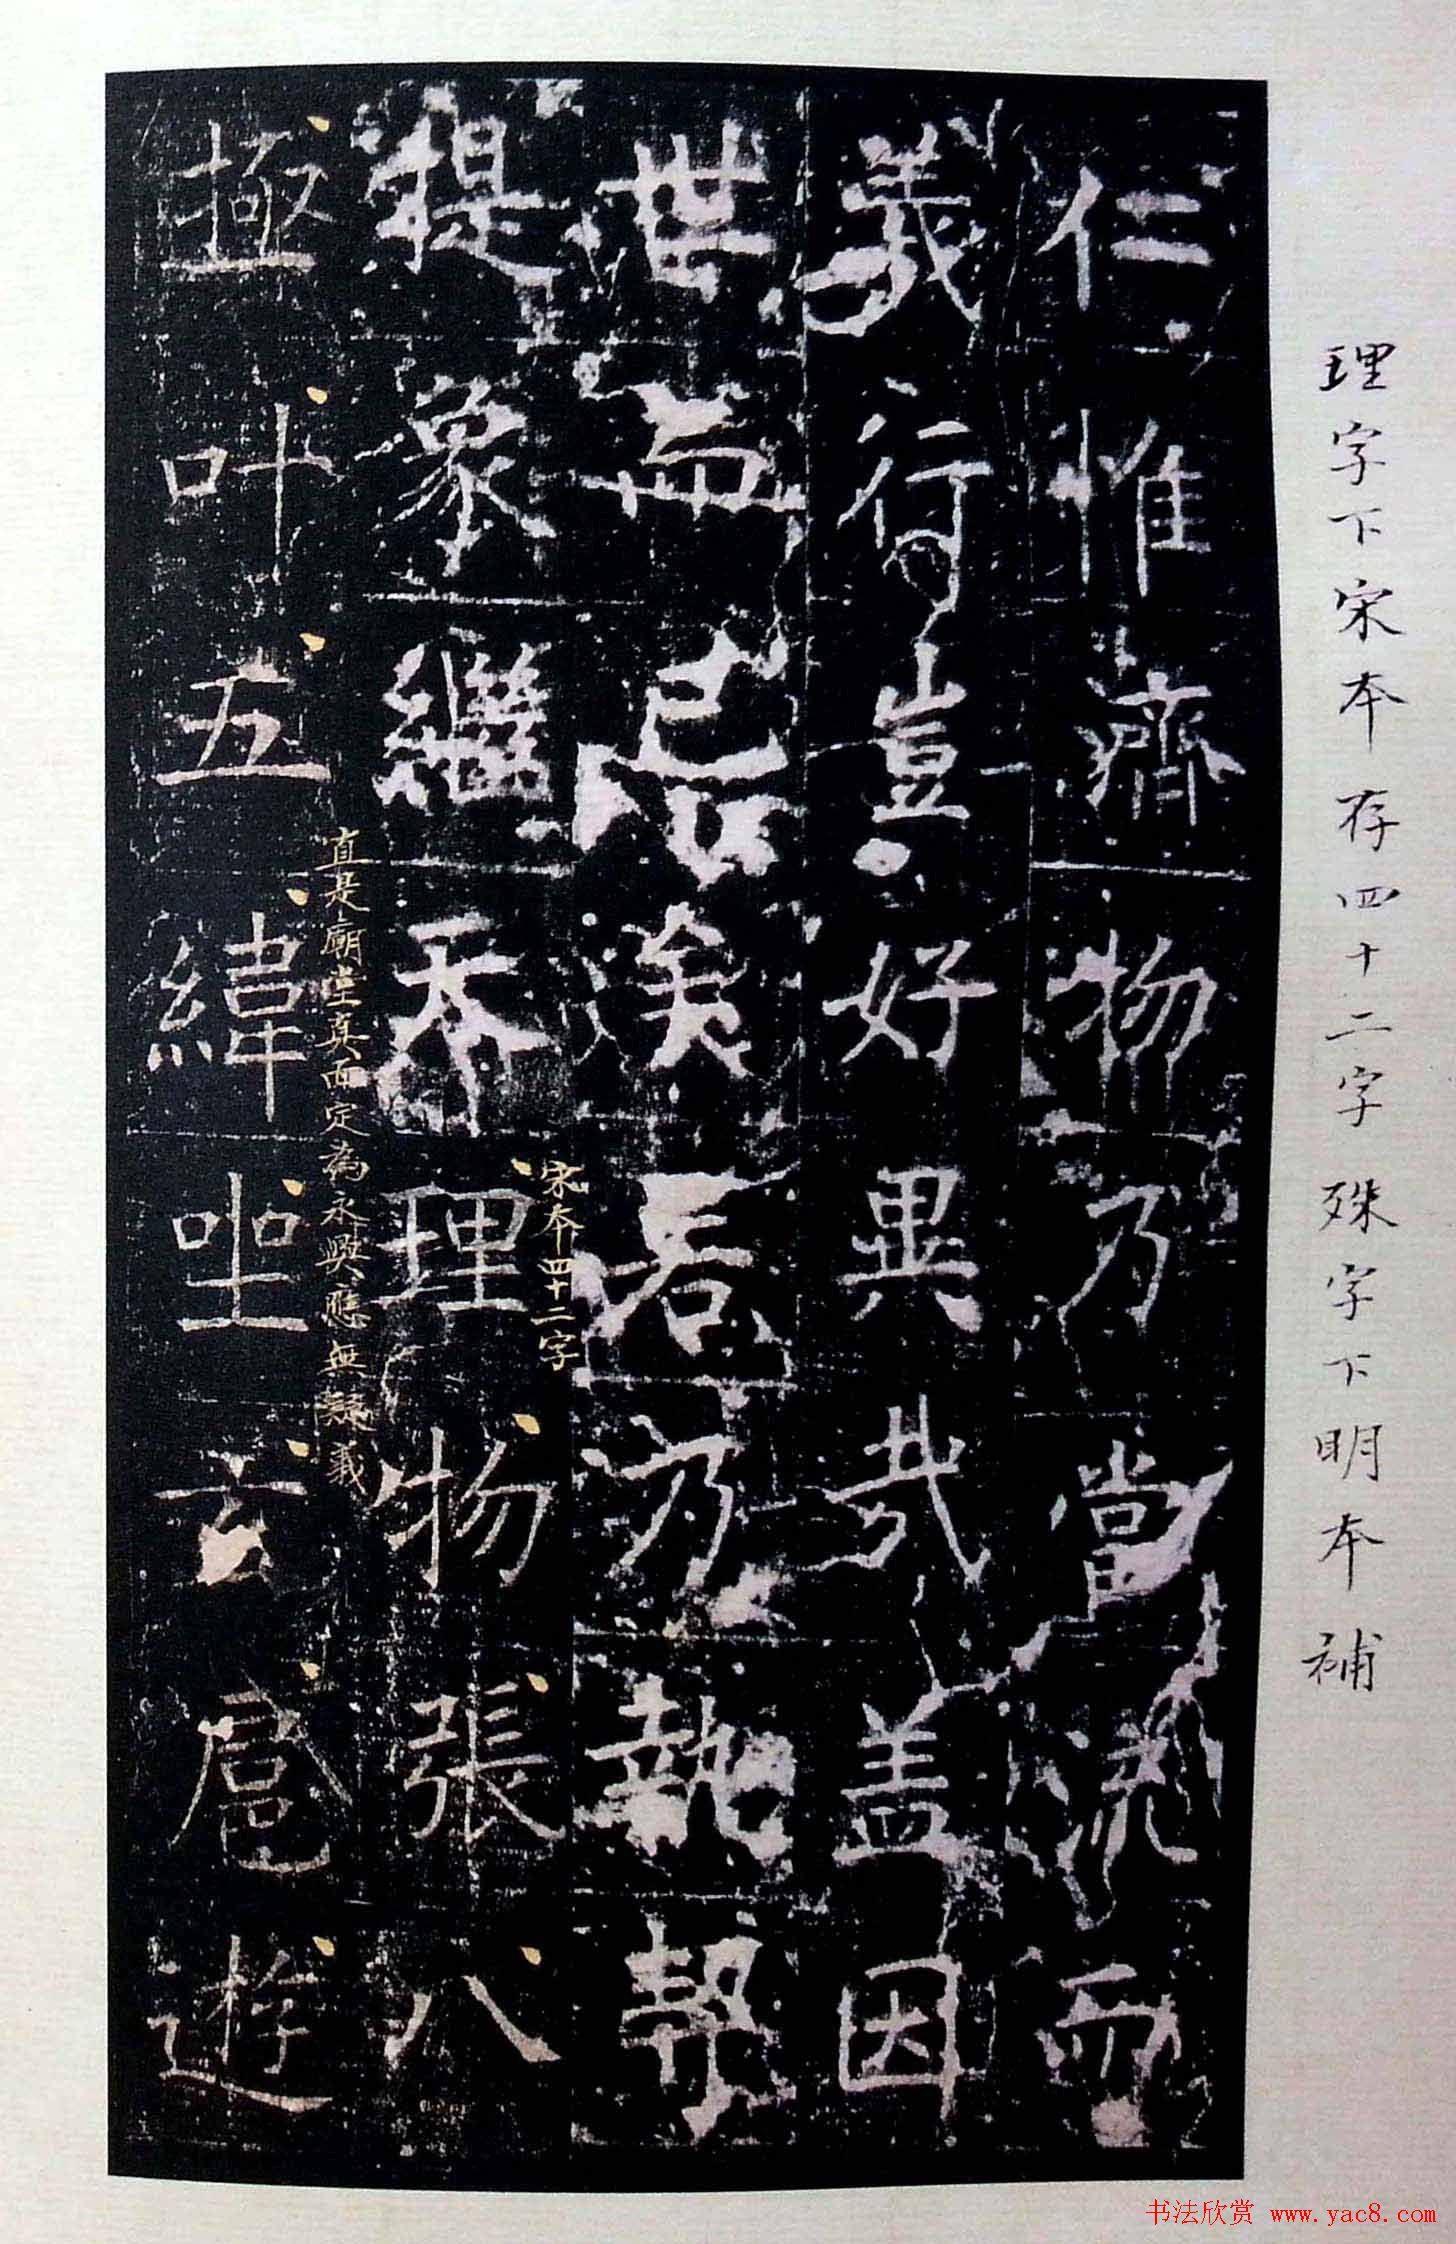 理字下宋本存四十二字殊字下明本補
仁惟濟物乃當流而
義行豈好異哉盖因
世而忘渙君方執契
提象繼天理物張八
極叶五緯坐玄扈遊
宋本四十二字
直是廟堂真面定為永興應無疑義
书法欣赏 www.yac8.com